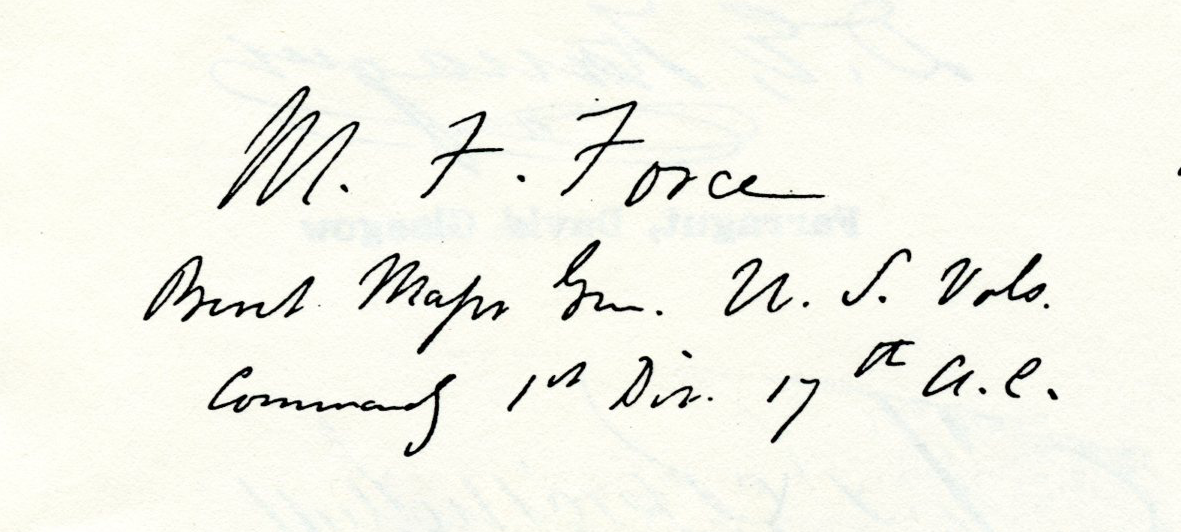 M. F. Force
Brevt Major Gen. U. S. Vols.
Commandg 1st Div. 17th A. C.
Farragut, David Glasgow